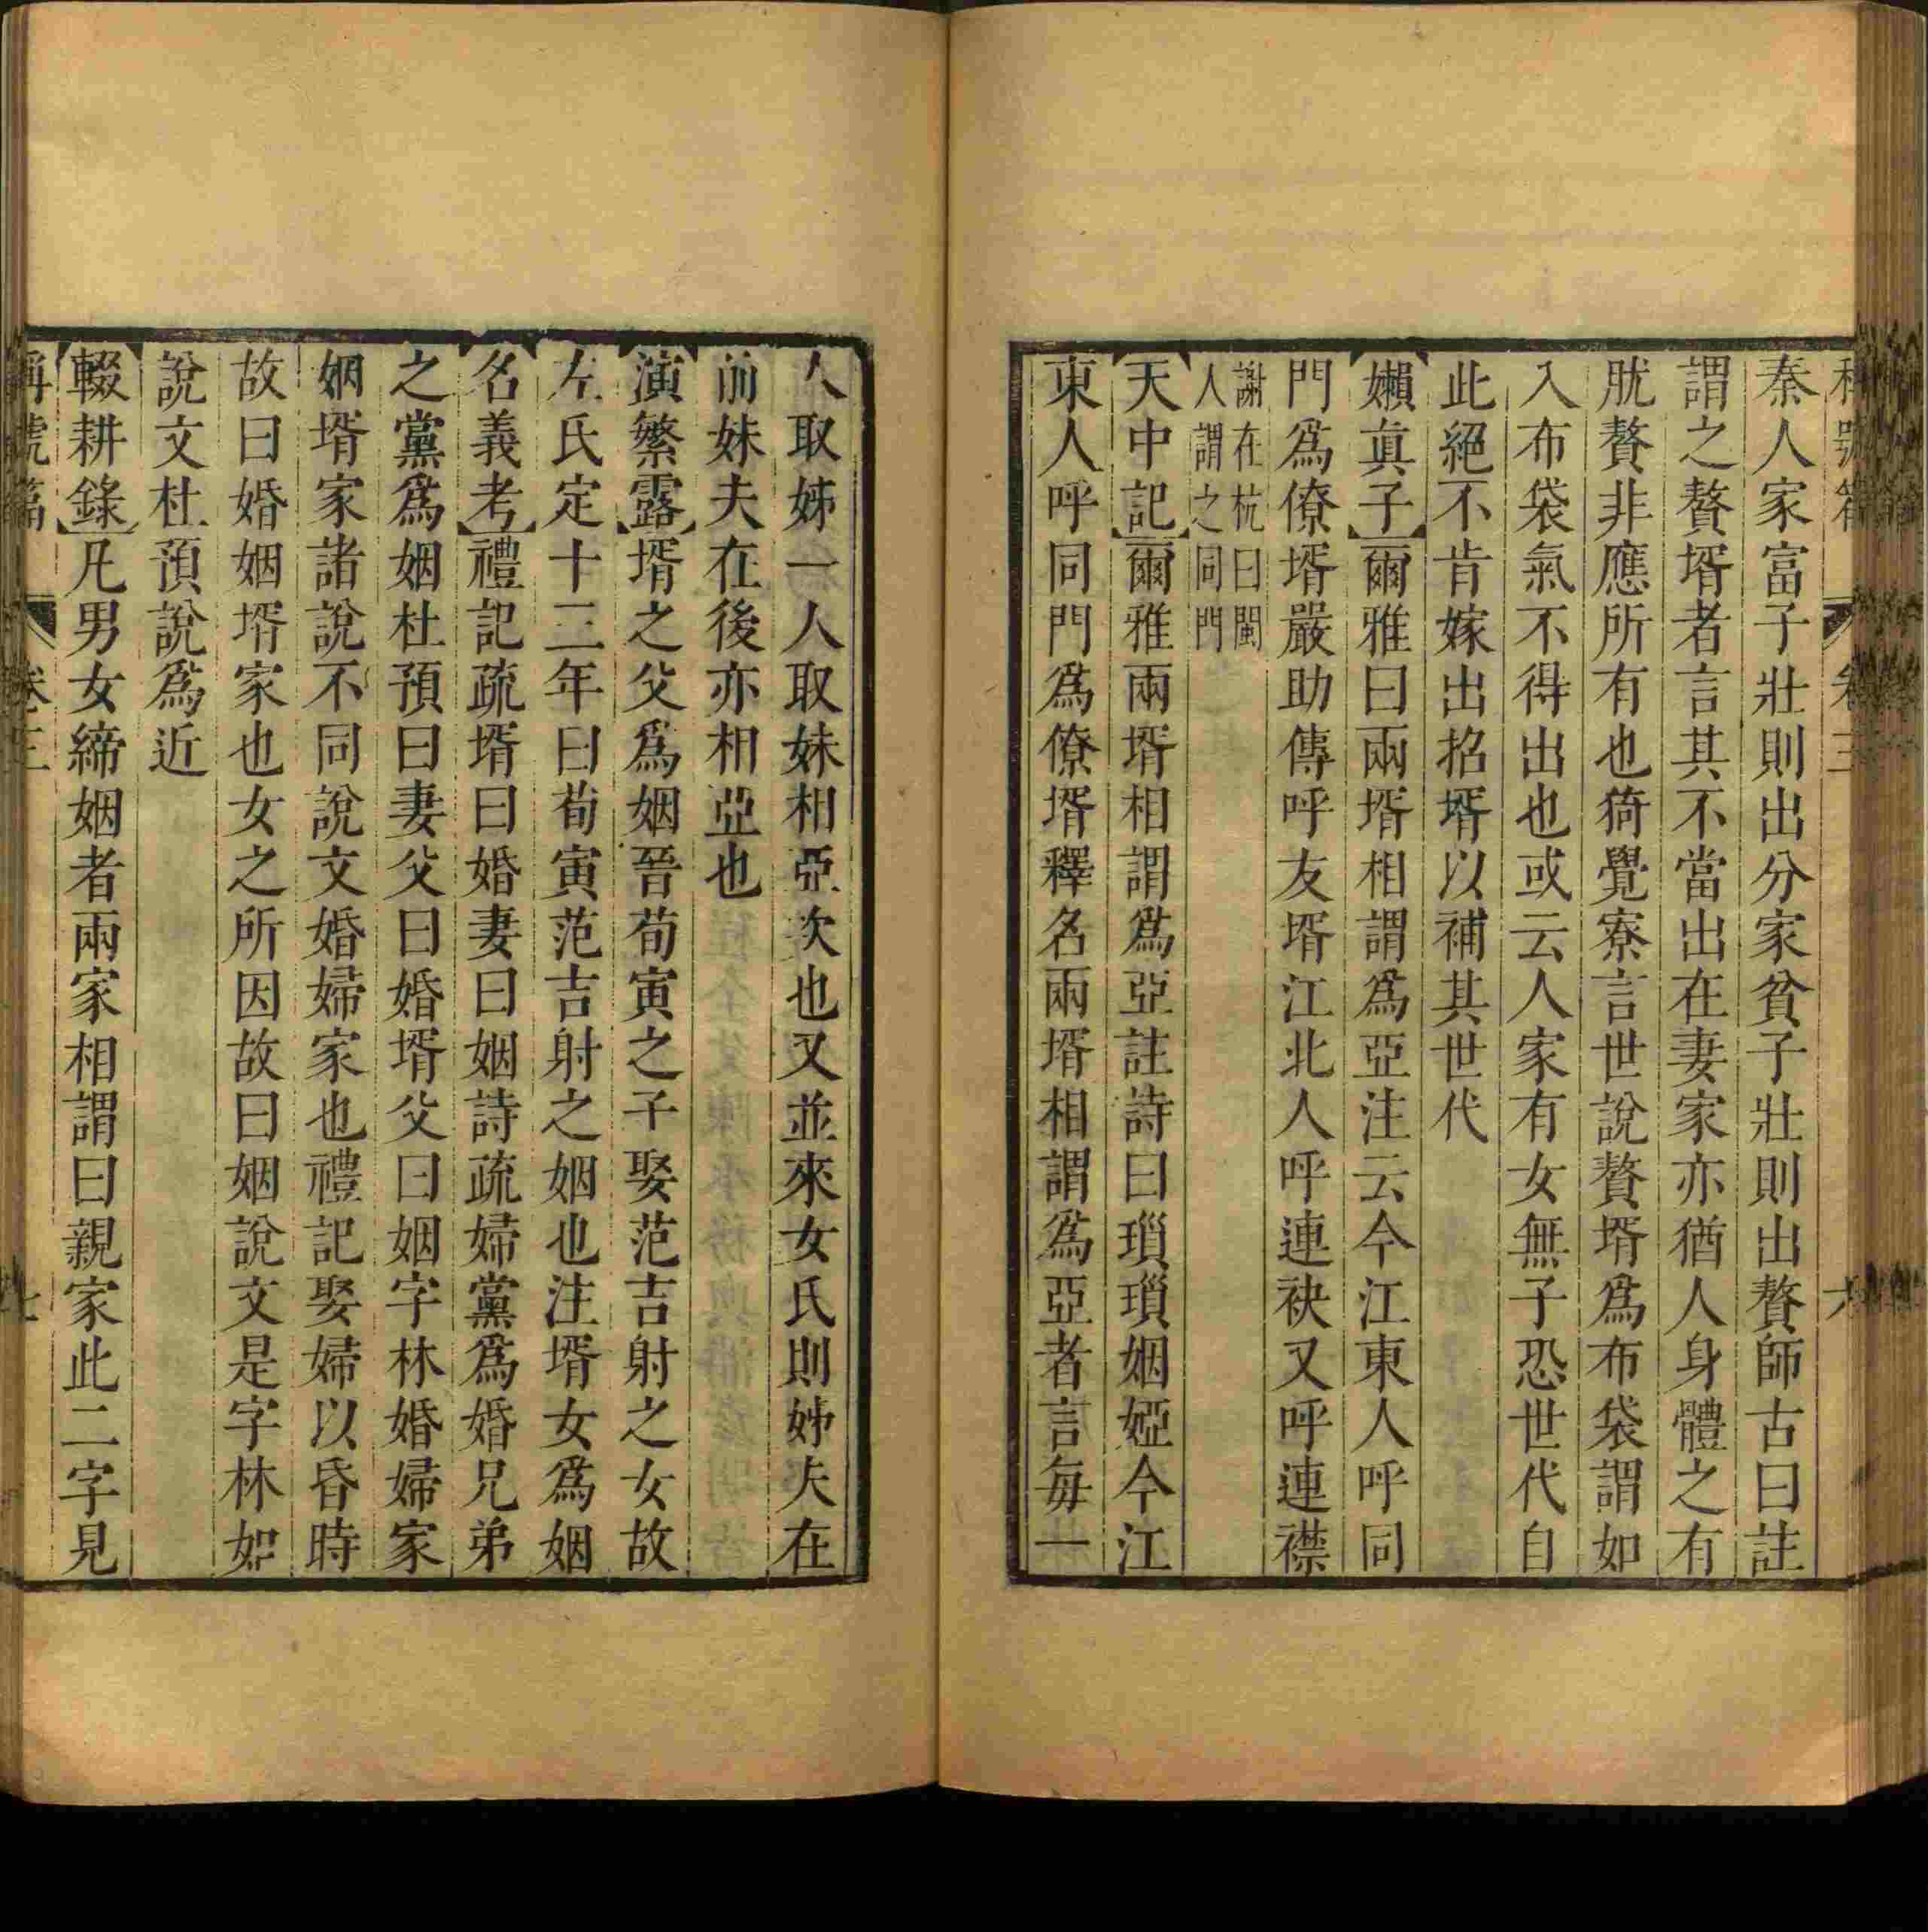 稱號篇 卷三 六
秦人家富子壯則出分家貧子壯則出贅師古曰註
謂之贅壻者言其不當出在妻家亦猶人身體之有
肬贅非應所有也猗覺寮言世說贅壻爲布袋謂如
入布袋氣不得出也或云人家有女無子恐世代自
此絕不肯嫁出招壻以補其世代
【嬾真子】爾雅曰兩壻相謂爲亞注云今江東人呼同
門爲僚壻嚴助傳呼友壻江北人呼連袂又呼連襟
謝在杭曰閩
人謂之同門
【天中記】爾雅兩壻相謂爲亞註詩曰瑣瑣姻婭今江
東人呼同門爲僚壻釋名兩壻相謂爲亞者言每一
人取姊一人取妹相亞次也又並來女氏則姊夫在
前妹夫在後亦相亞也
【演繁露】壻之父爲姻晉荀寅之子娶范吉射之女故
左氏定十三年曰荀寅范吉射之姻也注壻女爲姻
【名義考】禮記疏壻曰婚妻曰姻詩疏婦黨爲婚兄弟
之黨爲姻杜預曰妻父曰婚壻父曰姻字林婚婦家
姻壻家諸說不同說文婚婦家也禮記娶婦以昏時
故曰婚姻壻家也女之所因故曰姻說文是字林如
說文杜預說爲近
【輟耕錄】凡男女締姻者兩家相謂曰親家此二字見
稱號篇 卷三 七